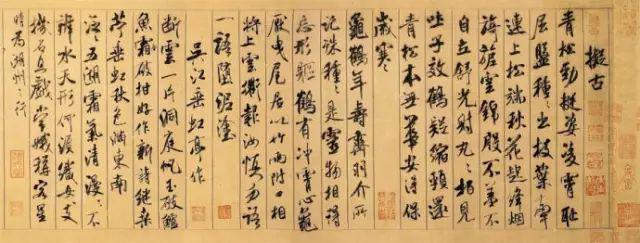 擬古
青松勁挺姿凌霄恥
屈盤種〻出枝葉牽
連上松端秋花起絳煙
旖旎雲錦殷不羞不
自立舒光射丸〻柏見
吐子效鶴疑縮頸還
青松本無華安得保
歲寒
龜鶴年壽齊羽介所
託殊種〻是靈物相得
忘形軀鶴有沖霄心龜
厭曳尾居以竹兩附口相
將上雲衢報汝慎勿語
一語墮泥塗
吳江垂虹亭作
斷雲一片洞庭帆玉破鱸
魚霜破柑好作新詩繼桑
苧垂虹秋色滿東南
泛〻五湖霜氣清漫〻不
辨水天形何須織女支
機石且戲嫦娥稱客星
時為湖州之行